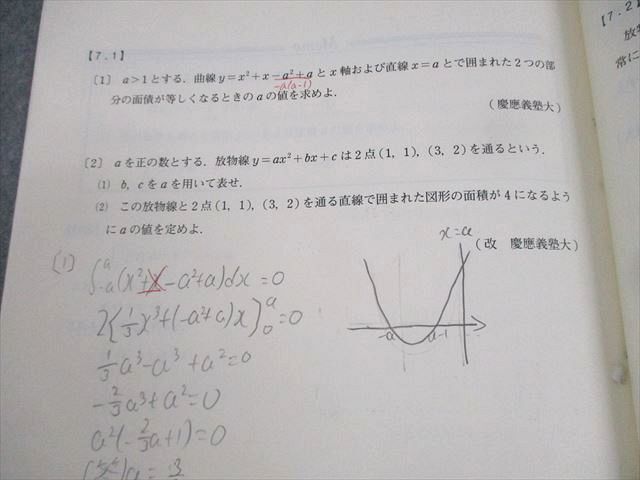 【7.2】
放物
常に
【7.1】
〔1〕 a>1とする．曲線y=x²+x-a²+aとx軸および直線x=aとで囲まれた2つの部
-a(a-1)
分の面積が等しくなるときのaの値を求めよ．
(慶應義塾大)
〔2〕 aを正の数とする．放物線y=ax²+bx+cは2点(1, 1)，(3, 2)を通るという．
(1) b, cをaを用いて表せ．
(2) この放物線と2点(1, 1)，(3, 2)を通る直線で囲まれた図形の面積が4になるよう
にaの値を定めよ．
(改 慶應義塾大)
x=a
-a a-1
(1)
∫_{-a}^{a}(x²+x-a²+a)dx=0
2{⅓x³+(-a²+a)x}_{0}^{a}=0
⅓a³-a³+a²=0
-⅔a³+a²=0
a²(-⅔a+1)=0
a=